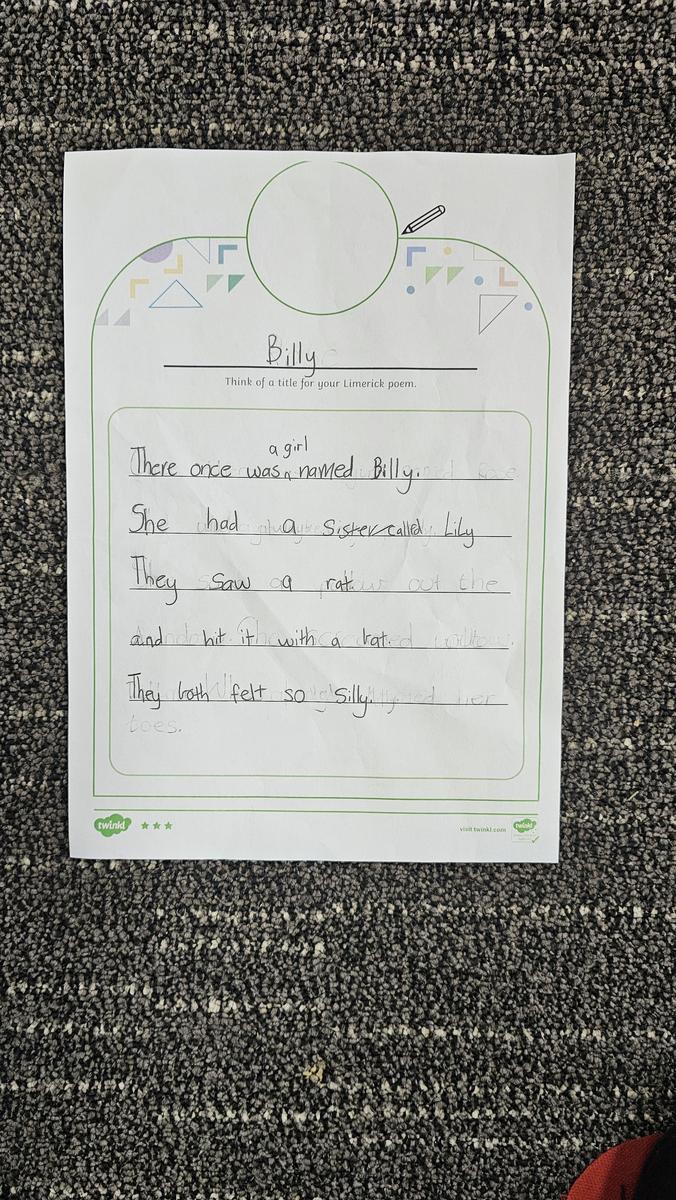 Billy
Think of a title for your Limerick poem.
a girl
There once was ^ named Billy.
She had a Sister called Lily
They Saw a rat
and hit it with a bat.
They both felt so Silly.
toes.
twinkl
visit twinkl.com
twinkl